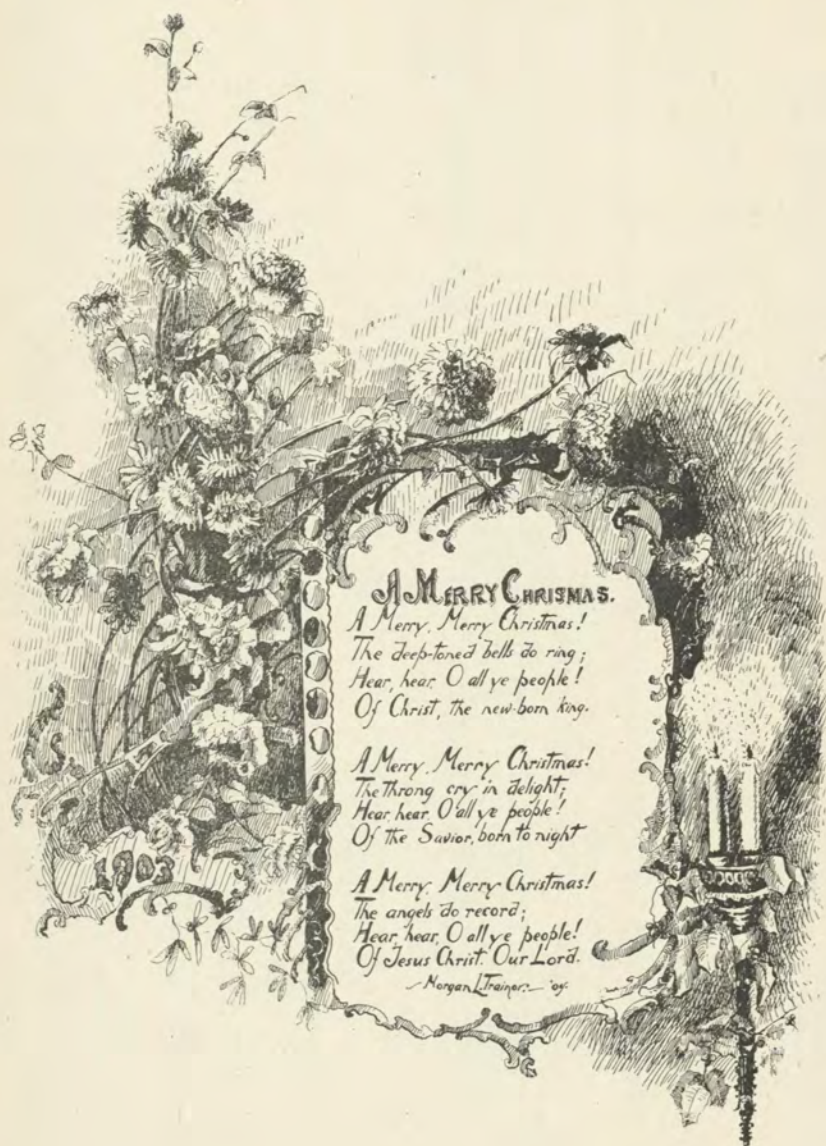 A MERRY CHRISMAS.
A Merry, Merry Christmas!
The deep-toned bells do ring;
Hear, hear, O all ye people!
Of Christ, the new-born king.
A Merry, Merry Christmas!
The throng cry in delight;
Hear, hear, O all ye people!
Of the Savior, born to night
A Merry, Merry Christmas!
The angels do record;
Hear, hear, O all ye people!
Of Jesus Christ. Our Lord.
—Morgan L. Trainor.— '04.
1903